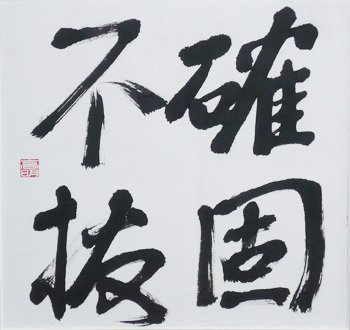 確固
不抜